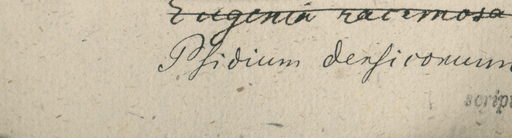 Eugenia racemosa
Psidium densicomum
scrip